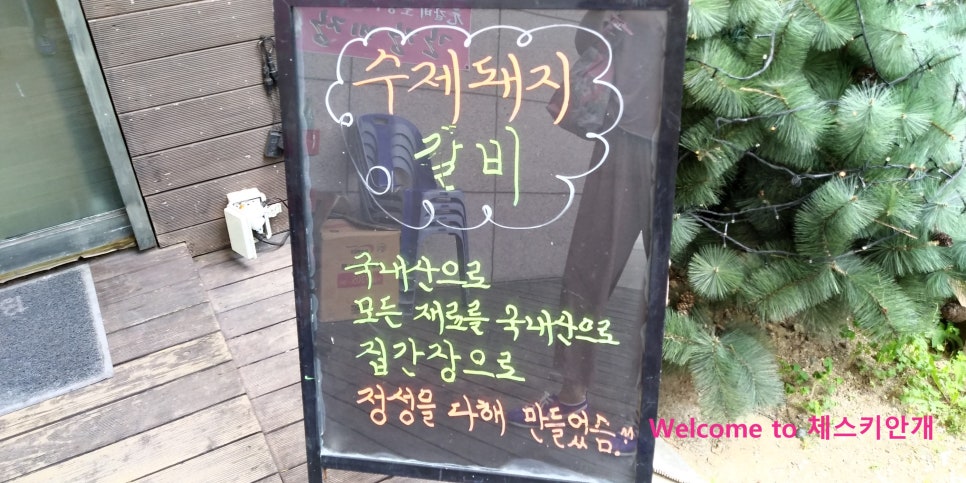 수제돼지
갈비
국내산으로
모든 재료를 국내산으로
집간장으로
정성을 다해 만들었슴.^^
Welcome to 체스키안개